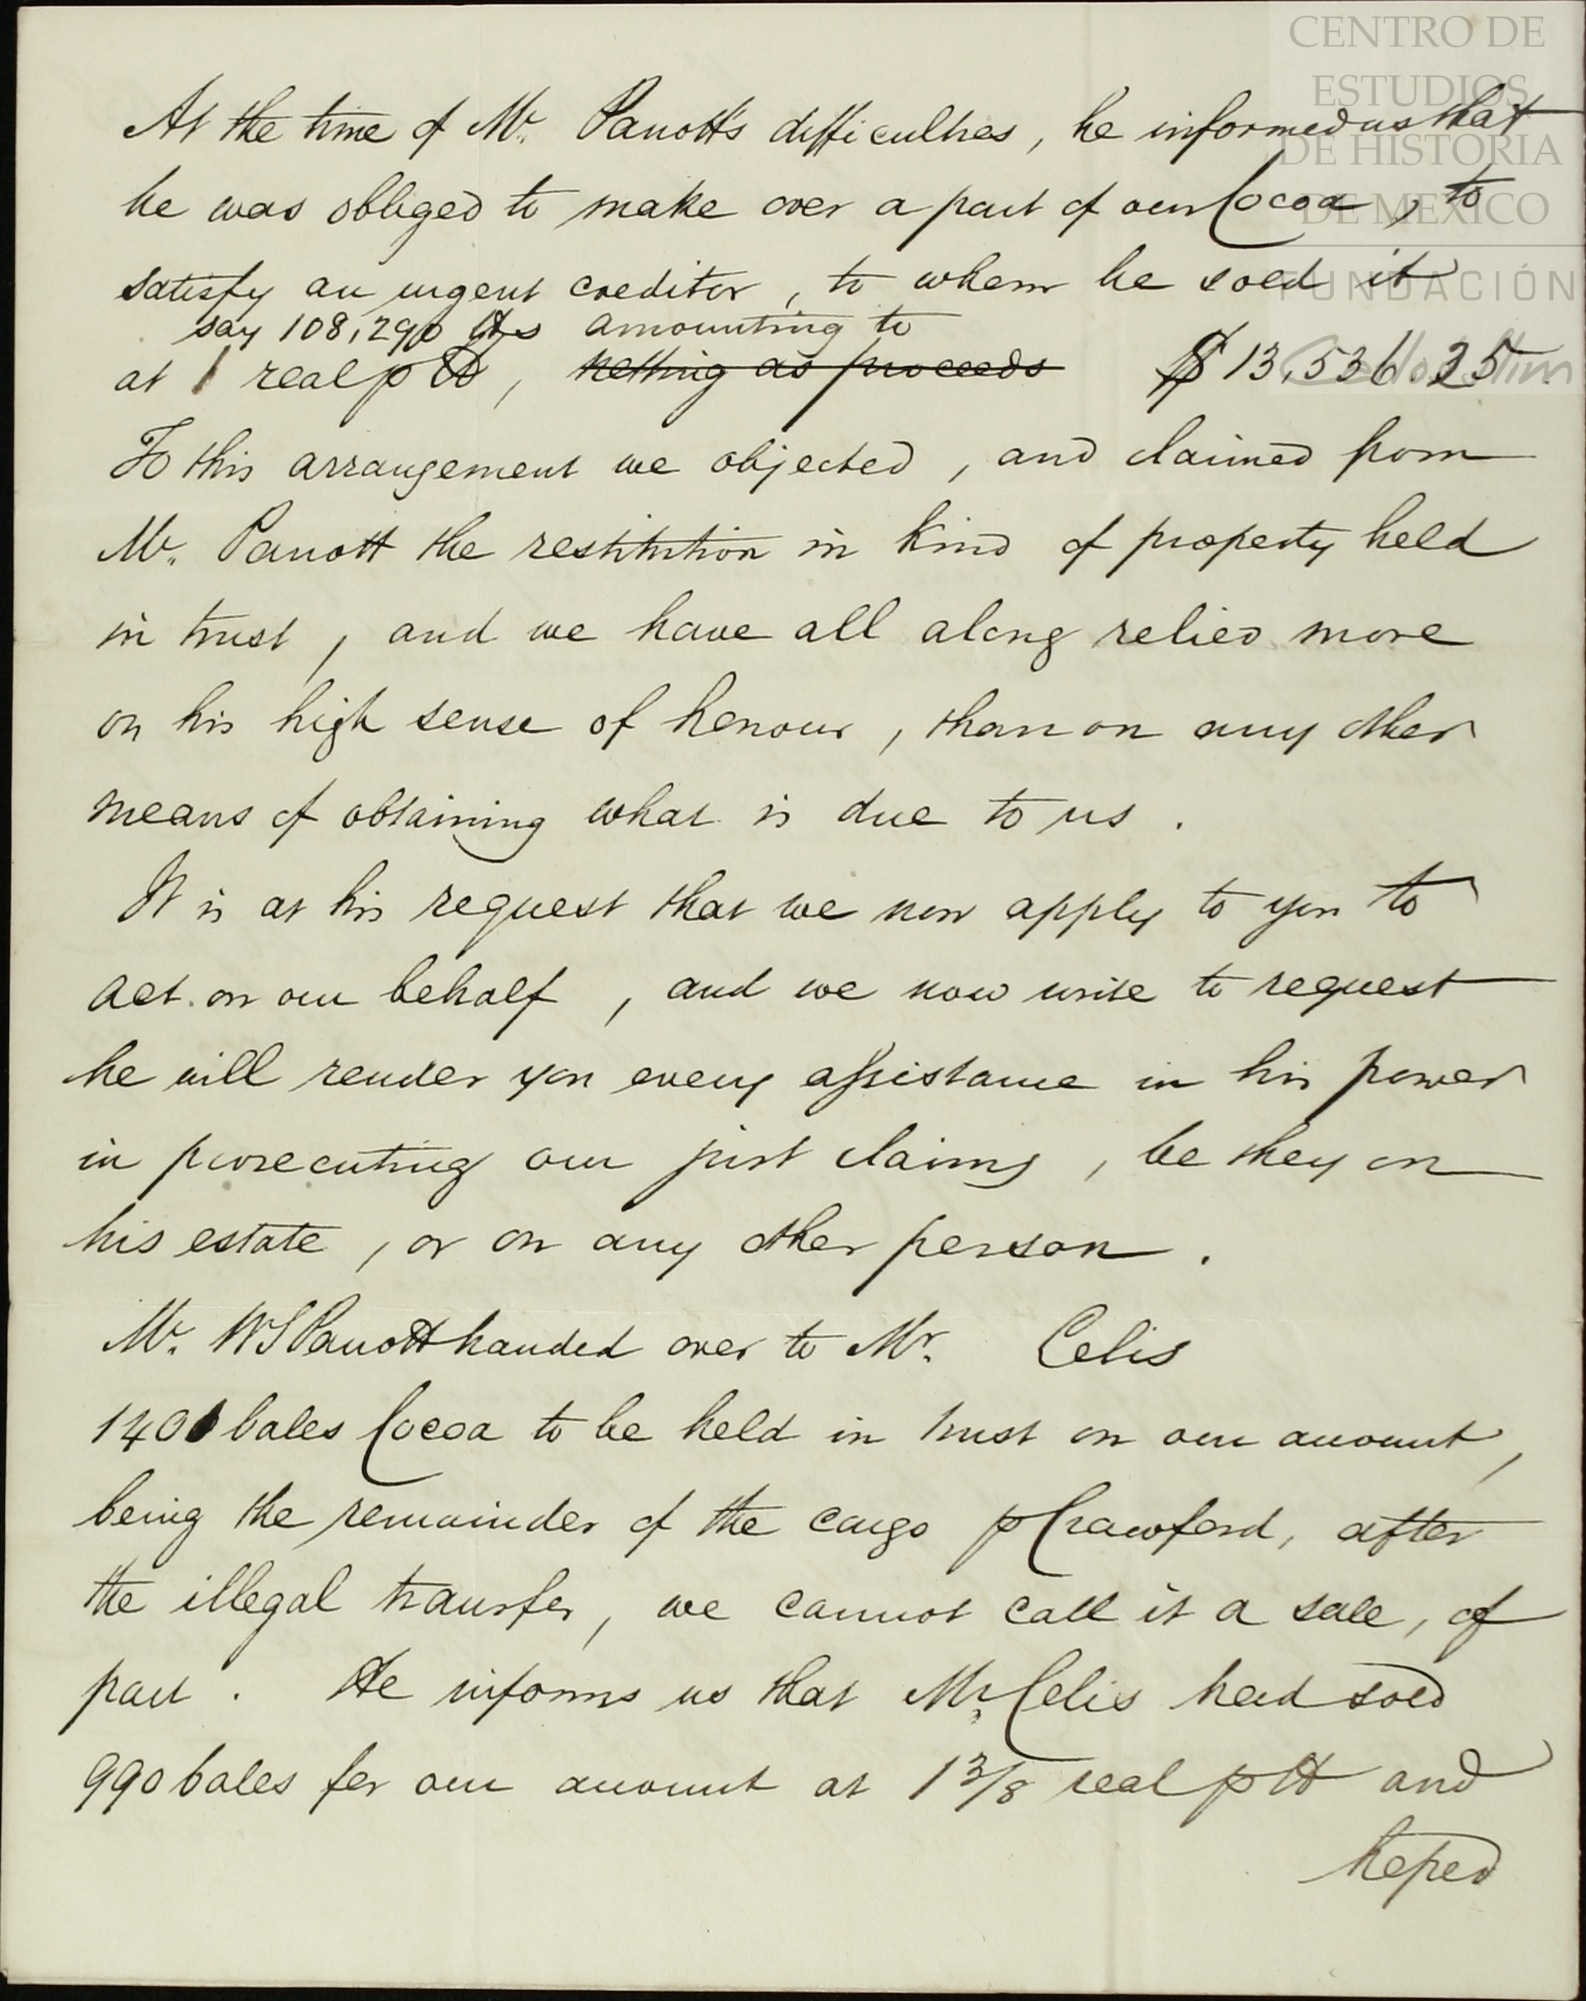 CENTRO DE
ESTUDIOS
DE HISTORIA
DE MEXICO
FUNDACIÓN
At the time of Mr. Parrott's difficulties, he informed us that
he was obliged to make over a part of our Cocoa, to
satisfy an urgent creditor, to whom he sold it
say 108,290 lbs amounting to
at 1 real p lb, netting as proceeds $13,536.25
To this arrangement we objected, and claimed from
Mr. Parrott the restitution in kind of property held
in trust, and we have all along relied more
on his high sense of honour, than on any other
means of obtaining what is due to us.
It is at his request that we now apply to you to
act on our behalf, and we now write to request
he will render you every assistance in his power
in prosecuting our just claims, be they on
his estate, or on any other person.
Mr. WS Parrott handed over to Mr. Celis
1401 bales Cocoa to be held in trust on our account,
being the remainder of the cargo p Crawford, after
the illegal transfer, we cannot call it a sale, of
part. He informs us that Mr. Celis had sold
990 bales for our account at 1 3/8 real p lb and
hoped